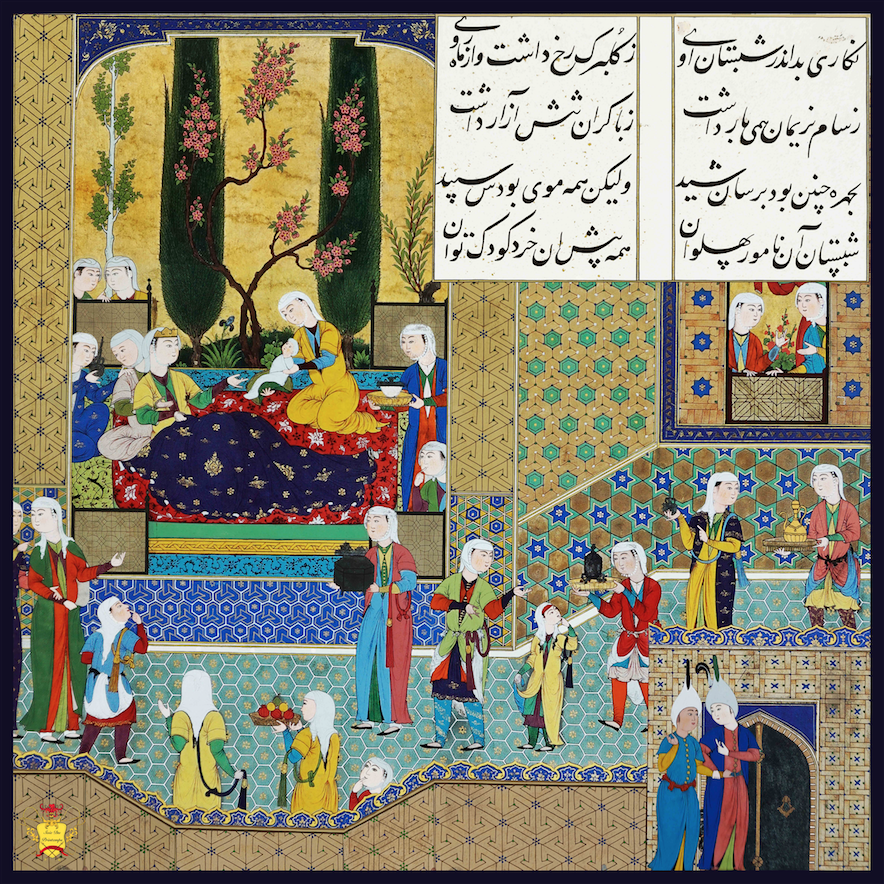 نکاری بد اندر شبستان اوی ز کُلبرک رخ داشت و از ماه روی
ز سام نریمان همی بار داشت ز بار کران تنش آزار داشت
بجهره چنین بود برسان شید ولیکن همه موی بودش سپید
شبستان آن نامور پهلوان همه پیش آن خرد کودک توان